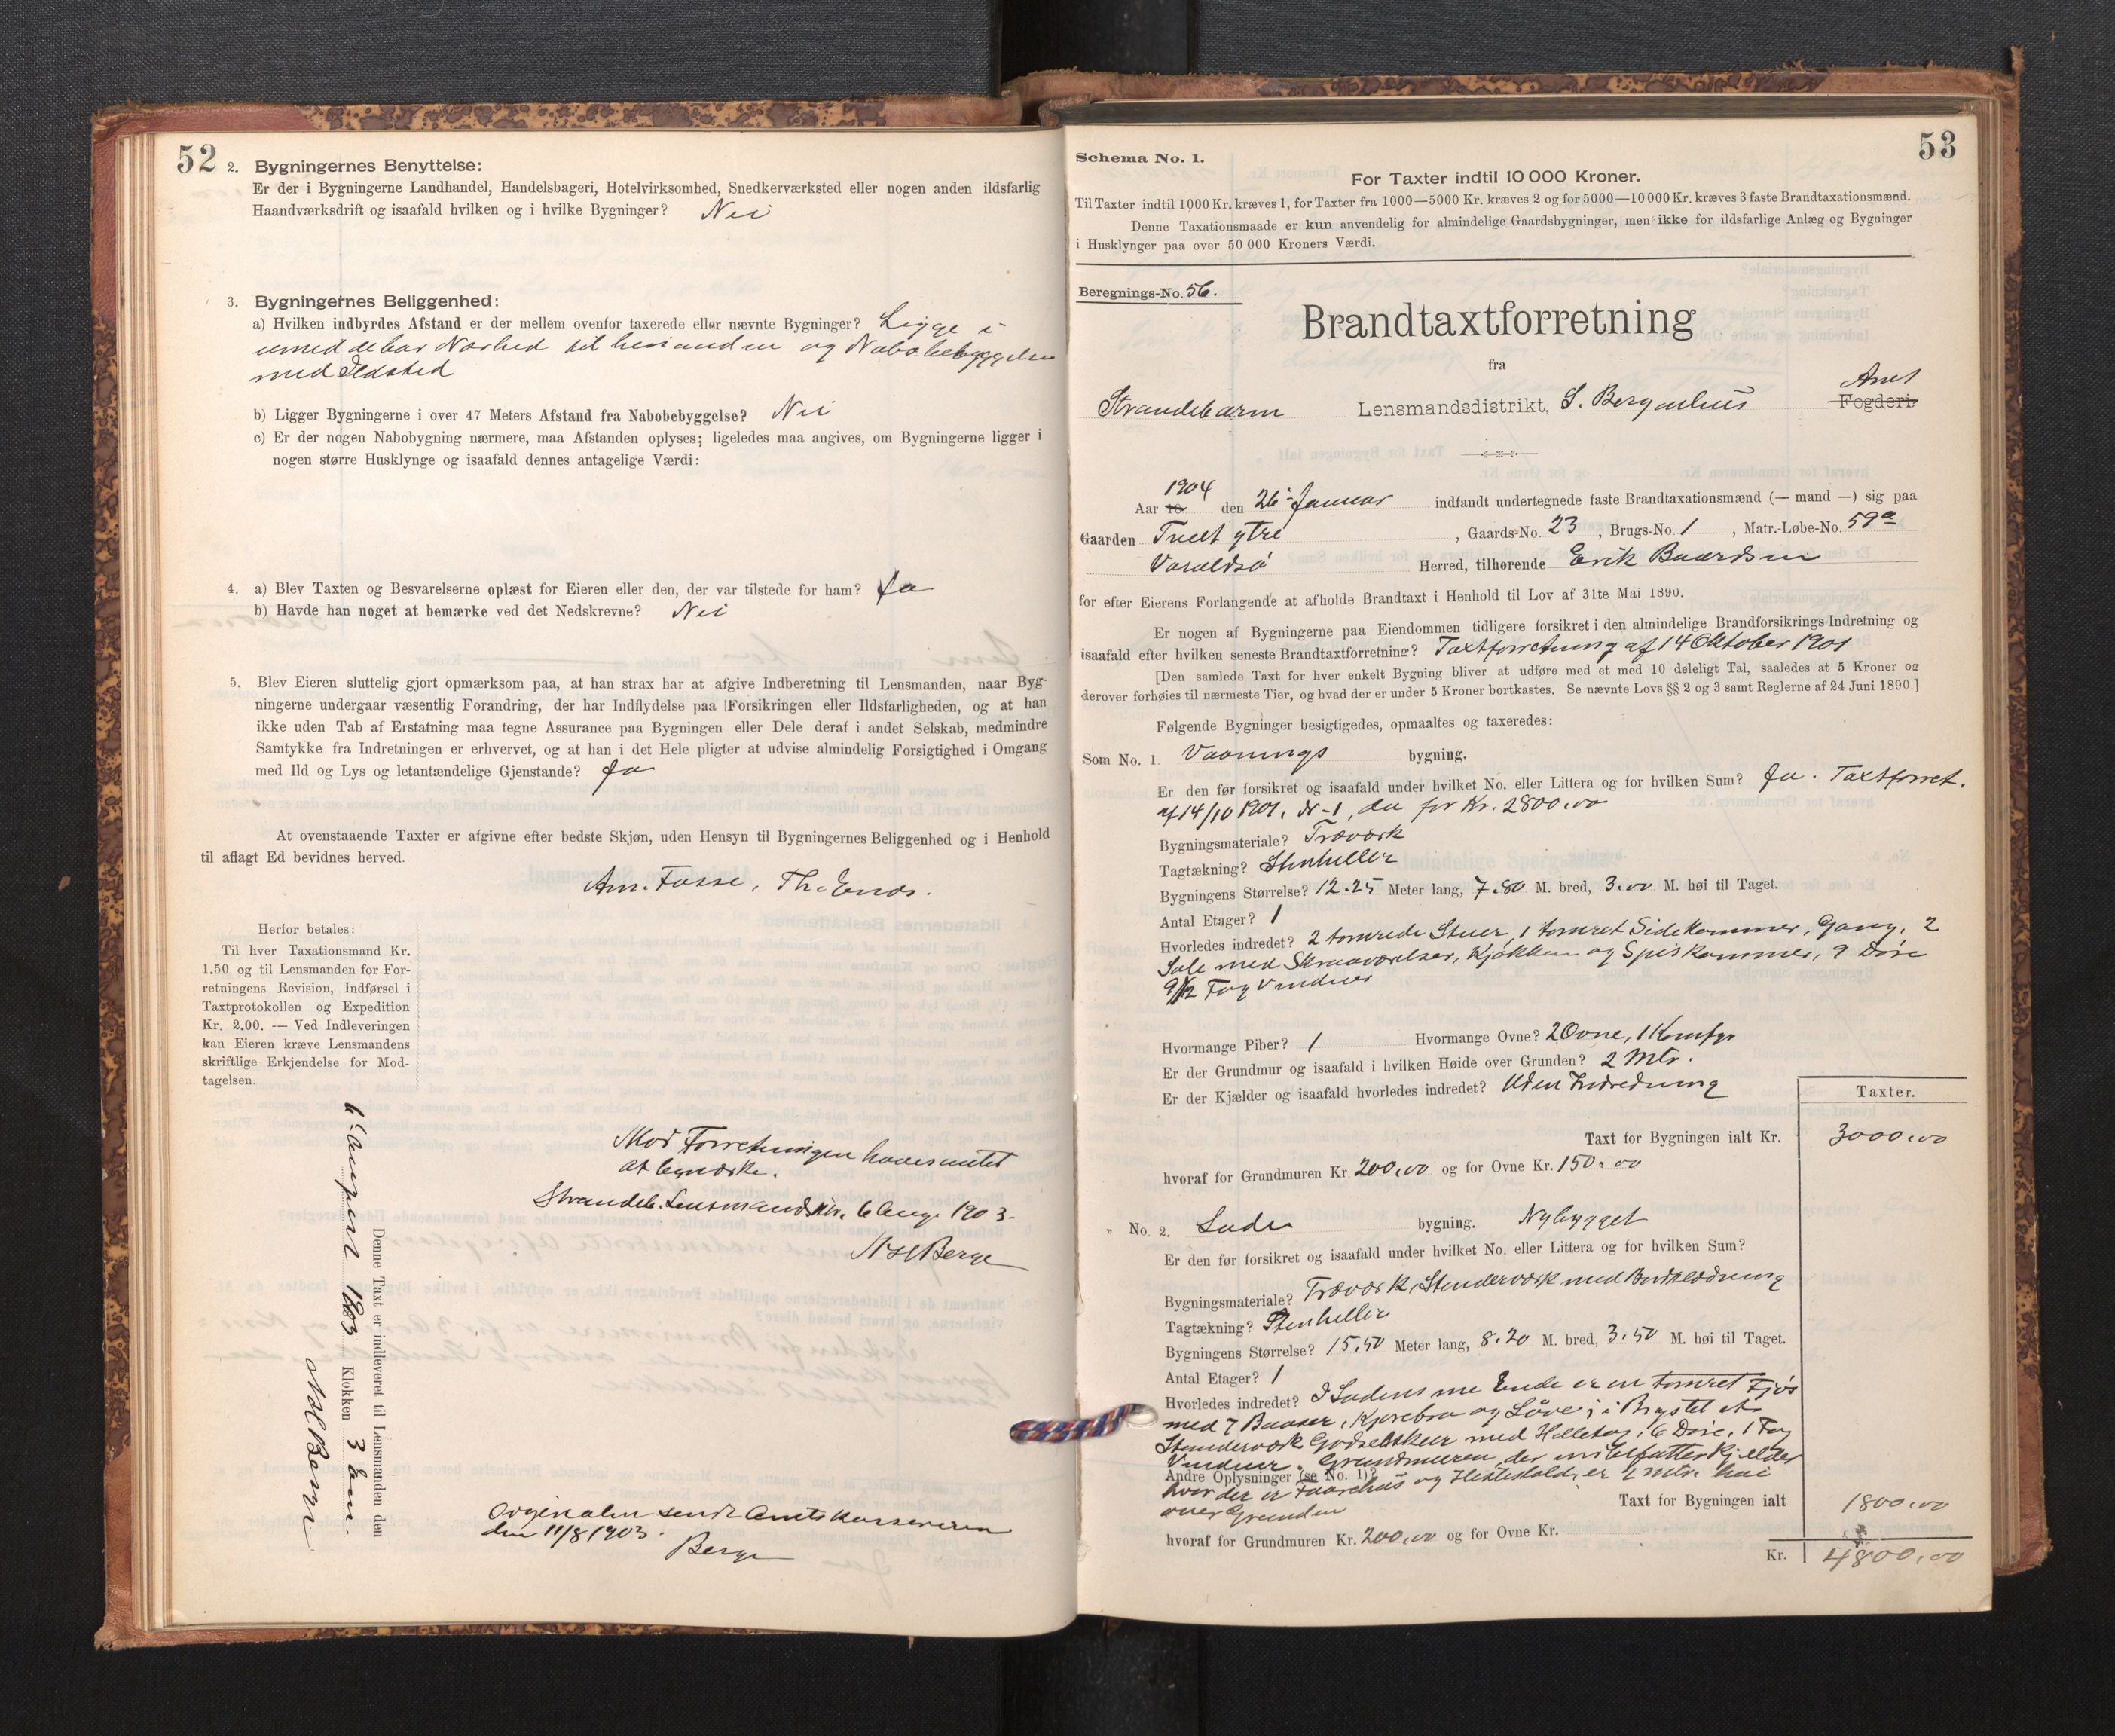 52
2. Bygningernes Benyttelse:
Er der i Bygningerne Landhandel, Handelsbageri, Hotelvirksomhed, Snedkerværksted eller nogen anden ildsfarlig
Haandværksdrift og isaafald hvilken og i hvilke Bygninger? Nei
3. Bygningernes Beliggenhed:
a) Hvilken indbyrdes Afstand er der mellem ovenfor taxerede eller nævnte Bygninger? Ligge i
umiddelbar Nærhed til hinanden og Nabobebyggelse
med Ildsted
b) Ligger Bygningerne i over 47 Meters Afstand fra Nabobebyggelse? Nei
c) Er der nogen Nabobygning nærmere, maa Afstanden oplyses; ligeledes maa angives, om Bygningerne ligger i
nogen større Husklynge og isaafald dennes antagelige Værdi:
4. a) Blev Taxten og Besvarelserne oplæst for Eieren eller den, der var tilstede for ham? Ja
b) Havde han noget at bemærke ved det Nedskrevne? Nei
5. Blev Eieren sluttelig gjort opmærksom paa, at han strax har at afgive Indberetning til Lensmanden, naar Byg-
ningerne undergaar væsentlig Forandring, der har Indflydelse paa Forsikringen eller Ildsfarligheden, og at han
ikke uden Tab af Erstatning maa tegne Assurance paa Bygningen eller Dele deraf i andet Selskab, medmindre
Samtykke fra Indretningen er erhvervet, og at han i det Hele pligter at udvise almindelig Forsigtighed i Omgang
med Ild og Lys og letantændelige Gjenstande? Ja
At ovenstaaende Taxter er afgivne efter bedste Skjøn, uden Hensyn til Bygningernes Beliggenhed og i Henhold
til aflagt Ed bevidnes herved.
Am. Fosse, Th. Enes.
Herfor betales:
Til hver Taxationsmand Kr.
1.50 og til Lensmanden for For-
retningens Revision, Indførsel i
Taxtprotokollen og Expedition
Kr. 2.00. — Ved Indleveringen
kan Eieren kræve Lensmandens
skriftlige Erkjendelse for Mod-
tagelsen.
Denne Taxt er indleveret til Lensmanden den
6 august 1903 Klokken 3 Em.
Mod Forretningen haves intet
at bemærke.
Strandeb. Lensmandsktr. 6 Aug. 1903.
Berge
Orginalen sendt Amtskassereren
den 11/8 1903.
Berge
53
Schema No. 1.
For Taxter indtil 10 000 Kroner.
Til Taxter indtil 1000 Kr. kræves 1, for Taxter fra 1000—5000 Kr. kræves 2 og for 5000—10 000 Kr. kræves 3 faste Brandtaxationsmænd.
Denne Taxationsmaade er kun anvendelig for almindelige Gaardsbygninger, men ikke for ildsfarlige Anlæg og Bygninger
i Husklynger paa over 50 000 Kroners Værdi.
Beregnings-No. 56.
Brandtaxtforretning
fra
Strandebarm Lensmandsdistrikt, S. Bergenhus Amt
Fogderi.
Aar 18 1904 den 26 Januar indfandt undertegnede faste Brandtaxationsmænd (— mand —) sig paa
Gaarden Tveit ytre, Gaards-No. 23, Brugs-No. 1, Matr.-Løbe-No. 59a
Varaldsø Herred, tilhørende Erik Baardsen
for efter Eierens Forlangende at afholde Brandtaxt i Henhold til Lov af 31te Mai 1890.
Er nogen af Bygningerne paa Eiendommen tidligere forsikret i den almindelige Brandforsikrings-Indretning og
isaafald efter hvilken seneste Brandtaxtforretning? Taxtforretning af 14 Oktober 1901
[Den samlede Taxt for hver enkelt Bygning bliver at udføre med et med 10 deleligt Tal, saaledes at 5 Kroner og
derover forhøies til nærmeste Tier, og hvad der er under 5 Kroner bortkastes. Se nævnte Lovs §§ 2 og 3 samt Reglerne af 24 Juni 1890.]
Følgende Bygninger besigtigedes, opmaaltes og taxeredes:
Som No. 1. Vaanings bygning.
Er den før forsikret og isaafald under hvilket No. eller Littera og for hvilken Sum? Ja. Taxtforret.
af 14/10 1901, No 1, da for Kr. 2800,00
Bygningsmateriale? Træværk
Tagtækning? Stenheller
Bygningens Størrelse? 12.25 Meter lang, 7.80 M. bred, 3.00 M. høi til Taget.
Antal Etager? 1
Hvorledes indredet? 2 tømrede Stuer, 1 tømret Sidekammer, Gang, 2
Sale med Skraaværelser, Kjøkken og Spiskammer, 9 Døre
9 1/2 Fag Vinduer
Hvormange Piber? 1 Hvormange Ovne? 2 Ovne, 1 Komfyr
Er der Grundmur og isaafald i hvilken Høide over Grunden? 2 Mtr.
Er der Kjælder og isaafald hvorledes indredet? Uden Indredning
Taxter.
Taxt for Bygningen ialt Kr. 3000,00
hvoraf for Grundmuren Kr. 200,00 og for Ovne Kr. 150,00
„ No. 2. Lade bygning. Nybygget
Er den før forsikret og isaafald under hvilket No. eller Littera og for hvilken Sum?
Bygningsmateriale? Træværk, Stenderværk med Bordklædning
Tagtækning? Stenheller
Bygningens Størrelse? 15,50 Meter lang, 8.20 M. bred, 3.50 M. høi til Taget.
Antal Etager? 1
Hvorledes indredet? I Ladens ene Ende er en tømret Fjøs
med 7 Baaser, Kjørebro og Løve; i Brystet et
Stenderværk Gødselskur med Helletag, 6 Døre, 1 Fag
Vinduer. Grundmuren, der indbefatter Kjelder
Andre Oplysninger (se No. 1)?
hvor der er Faarehus og Hestestald, er 2 mtr. høi
over Grunden
Taxt for Bygningen ialt 1800,00
hvoraf for Grundmuren Kr. 200,00 og for Ovne Kr.
Kr. 4800,00